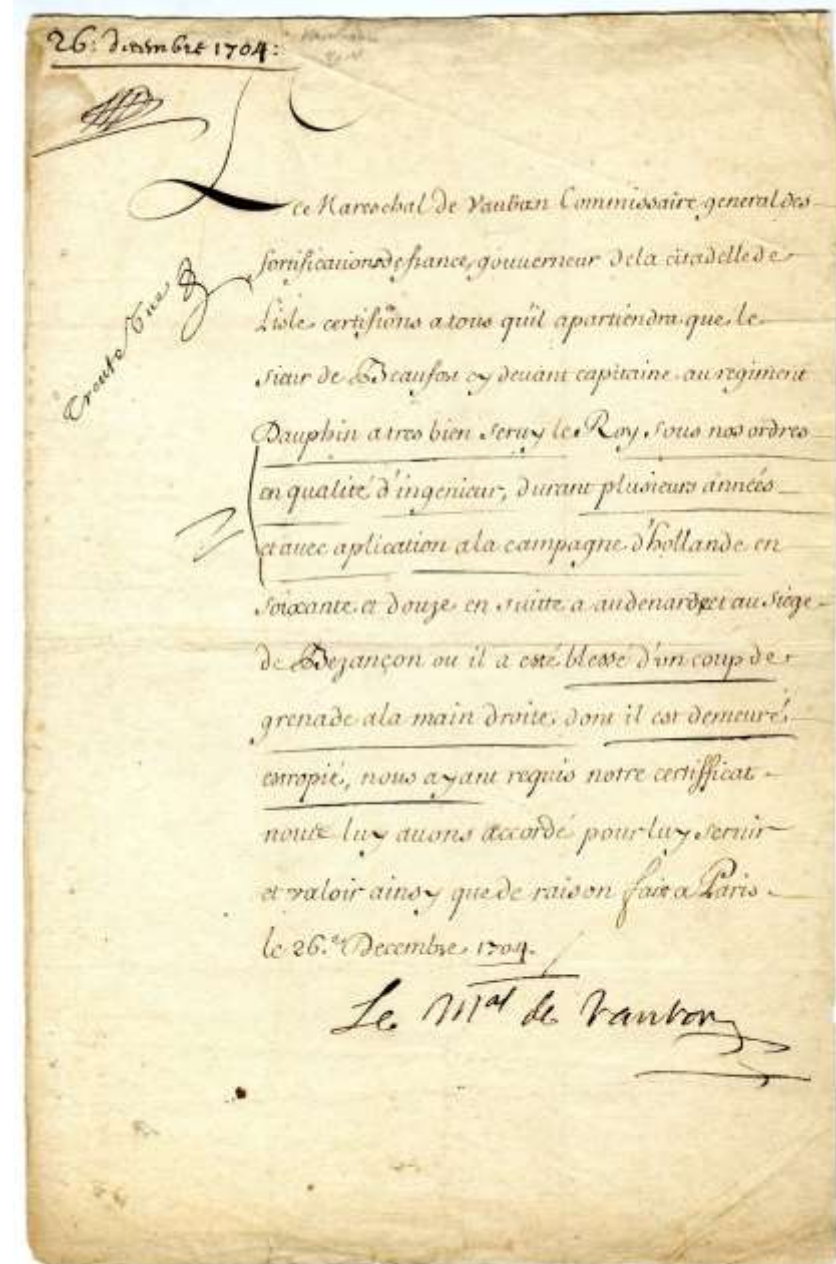 26: decembre 1704:
Le Mareschal de Vauban Commissaire general des
fortifications de france, gouuerneur dela citadelle de
Lisle certifions a tous quil apartiendra que le
sieur de Beaufort cy deuant capitaine au regiment
Dauphin a tres bien seruy le Roy sous nos ordres
en qualité d'ingenieur, durant plusieurs années
et auec aplication ala campagne d'hollande en
soixante et douze en suitte a audenarde et au siege
de Bezançon ou il a esté blessé d'un coup de
grenade ala main droite, dont il est demeuré
estropié, nous ayant requis notre certifficat
luy auons accordé pour luy seruir
et valoir ainsy que de raison fait a Paris
le 26.e Decembre 1704.
Le Mal de Vauban